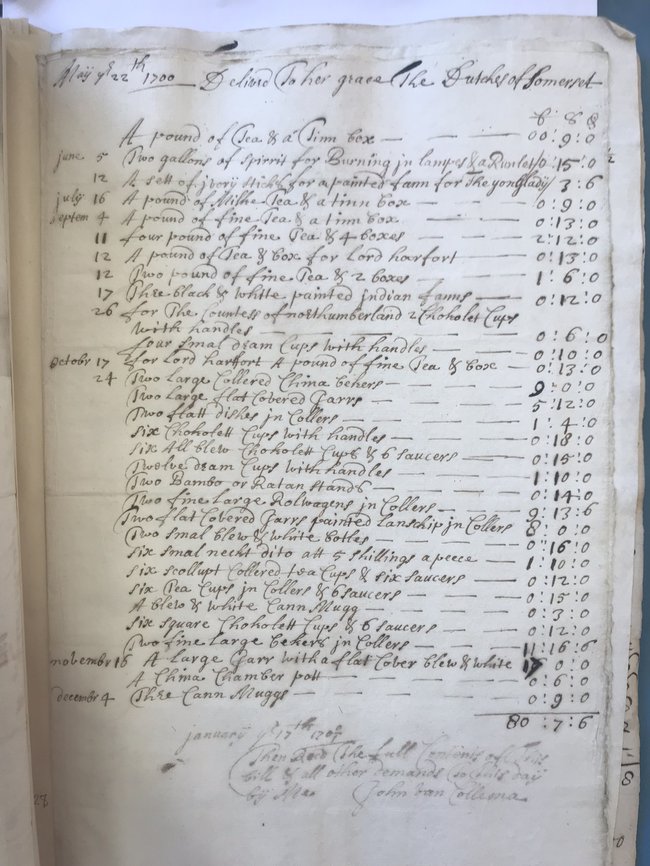 May ye 22th 1700 Deliverd To her grace The Dutches of Somerset
£ S D
A pound of Tea & a Tinn box — 00:9:0
june 5 Two gallons of spirrit for Burning jn lamps & a Runlet 0:15:0
12 A sett of jvory sticks for a painter fann for The yong lady 3:6
july 16 A pound of Mithe Tea & a tinn box — 0:9:0
septem 4 A pound of fine Tea & a tinn box — 0:13:0
11 four pound of fine Tea & 4 boxes — 2:12:0
12 A pound of Tea & box for Lord harfort — 0:13:0
12 Two pound of fine Tea & 2 boxes — 1:6:0
17 Thre black & white painted jndian fanns — 0:12:0
26 for The Countess of northumberland 2 Choholet Cups
with handles — 0:6:0
four smal dram Cups with handles — 0:10:0
Octobr 17 for Lord harfort A pound of fine Tea & box — 0:13:0
24 Two Large Collered China bekers — 9:0:0
Two Large flat Covered Jarrs — 5:12:0
Two flatt dishes jn Collers — 1:4:0
six Chokolett Cups with handles — 0:18:0
six All blew Chokolett Cups & 6 saucers — 0:15:0
Twelve dram Cups with handles — 1:10:0
Two Bambo or Ratan stands — 0:14:0
Two fine Large Rolwagens jn Collers — 9:13:6
Two flat Covered Jarrs painted Lanskip jn Collers 8:0:0
Two smal blew & white botles — 0:16:0
six smal neckt dito att 5 shillings a peece — 1:10:0
six scollupt Collered tea Cups & six saucers — 0:12:0
six Tea Cups jn Collers & 6 saucers — 0:15:0
A blew & white Cann Mugg — 0:3:0
six square Chokolett Cups & 6 saucers — 0:12:0
Two fine Large bekers jn Collers — 11:16:6
november 16 A Large Jarr with a flat Cover blew & white 17:0:0
A China Chamber pott — 0:6:0
decembr 4 Thre Cann Muggs — 0:9:0
80:7:6
january ye 17th
Then Recd The full Contents of This
bill & all other demands to this day
by Me John van Collema
28